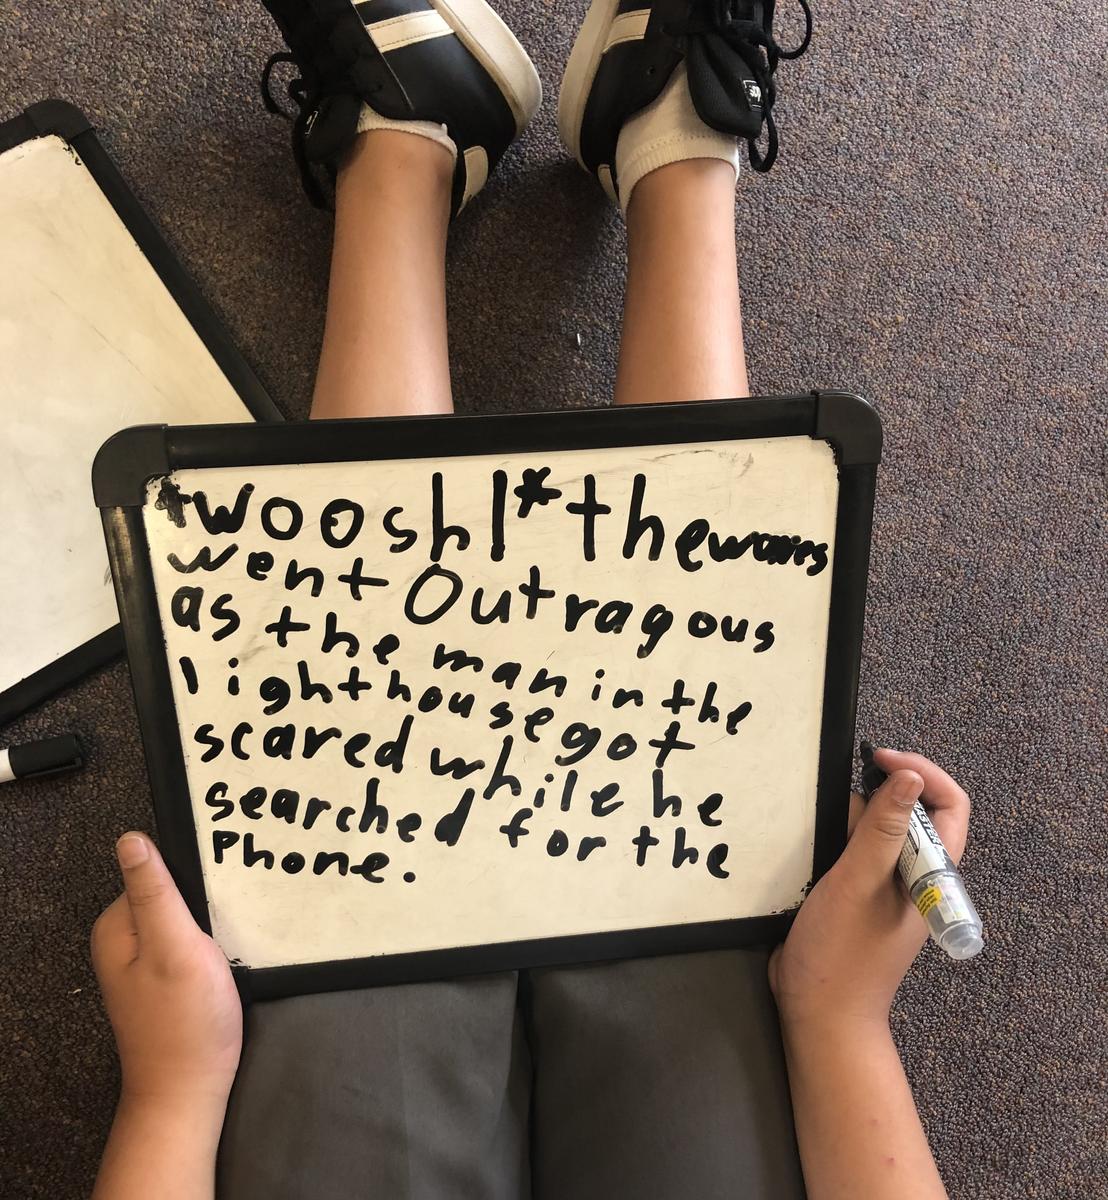 *woosh!* the waves
went Outragous
as the man in the
lighthouse got
scared while he
searched for the
Phone.